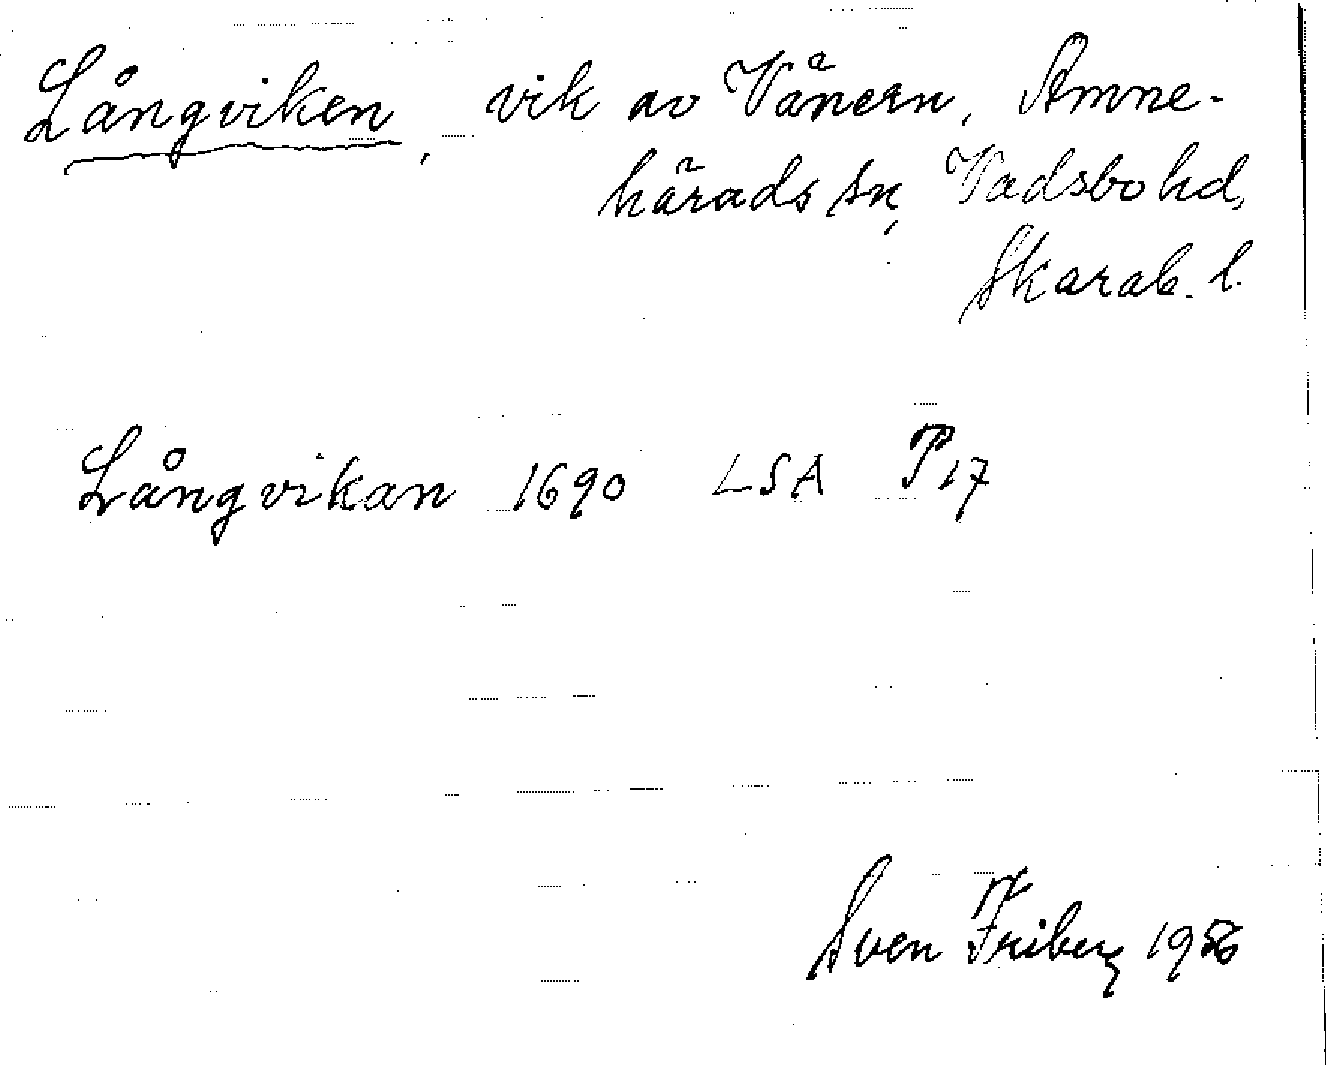 Långviken, vik av Vänern, Amne-
härads sn, Vadsbo hd,
Skarab. l.
Långvikan 1690 LSA P17
Sven Friberg 1956